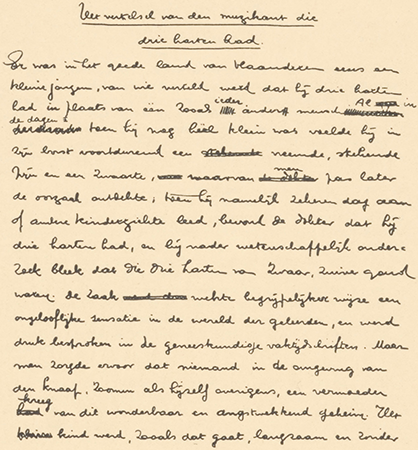 Het vertelsel van den muzikant die
drie harten had.
Er was in het goede land van Vlaanderen eens een
kleine jongen, van wie verteld werd dat hij drie harten
had in plaats van één zooals ieder ander mensch. Al in
de dagen toen hij nog heel klein was voelde hij in
zijn borst voortdurend een vreemde, stekende
pijn en een zwaarte, waarvan men pas later
de oorzaak ontdekte; toen hij namelijk zekeren dag aan
of andere kinderziekte leed, bevond de dokter dat hij
drie harten had, en bij nader wetenschappelijk onder-
zoek bleek dat die drie harten van zwaar, zuiver goud
waren. De zaak wekte begrijpelijker wijze een
ongelooflijke sensatie in de wereld der geleerden, en werd
druk besproken in de geneeskundige vaktijdschriften. Maar
men zorgde ervoor dat niemand in de omgeving van
den knaap, zoomin als hijzelf overigens, een vermoeden
kreeg van dit wonderbaar en angstwekkend geheim. Het
kind werd, zooals dat gaat, langzaam en zonder